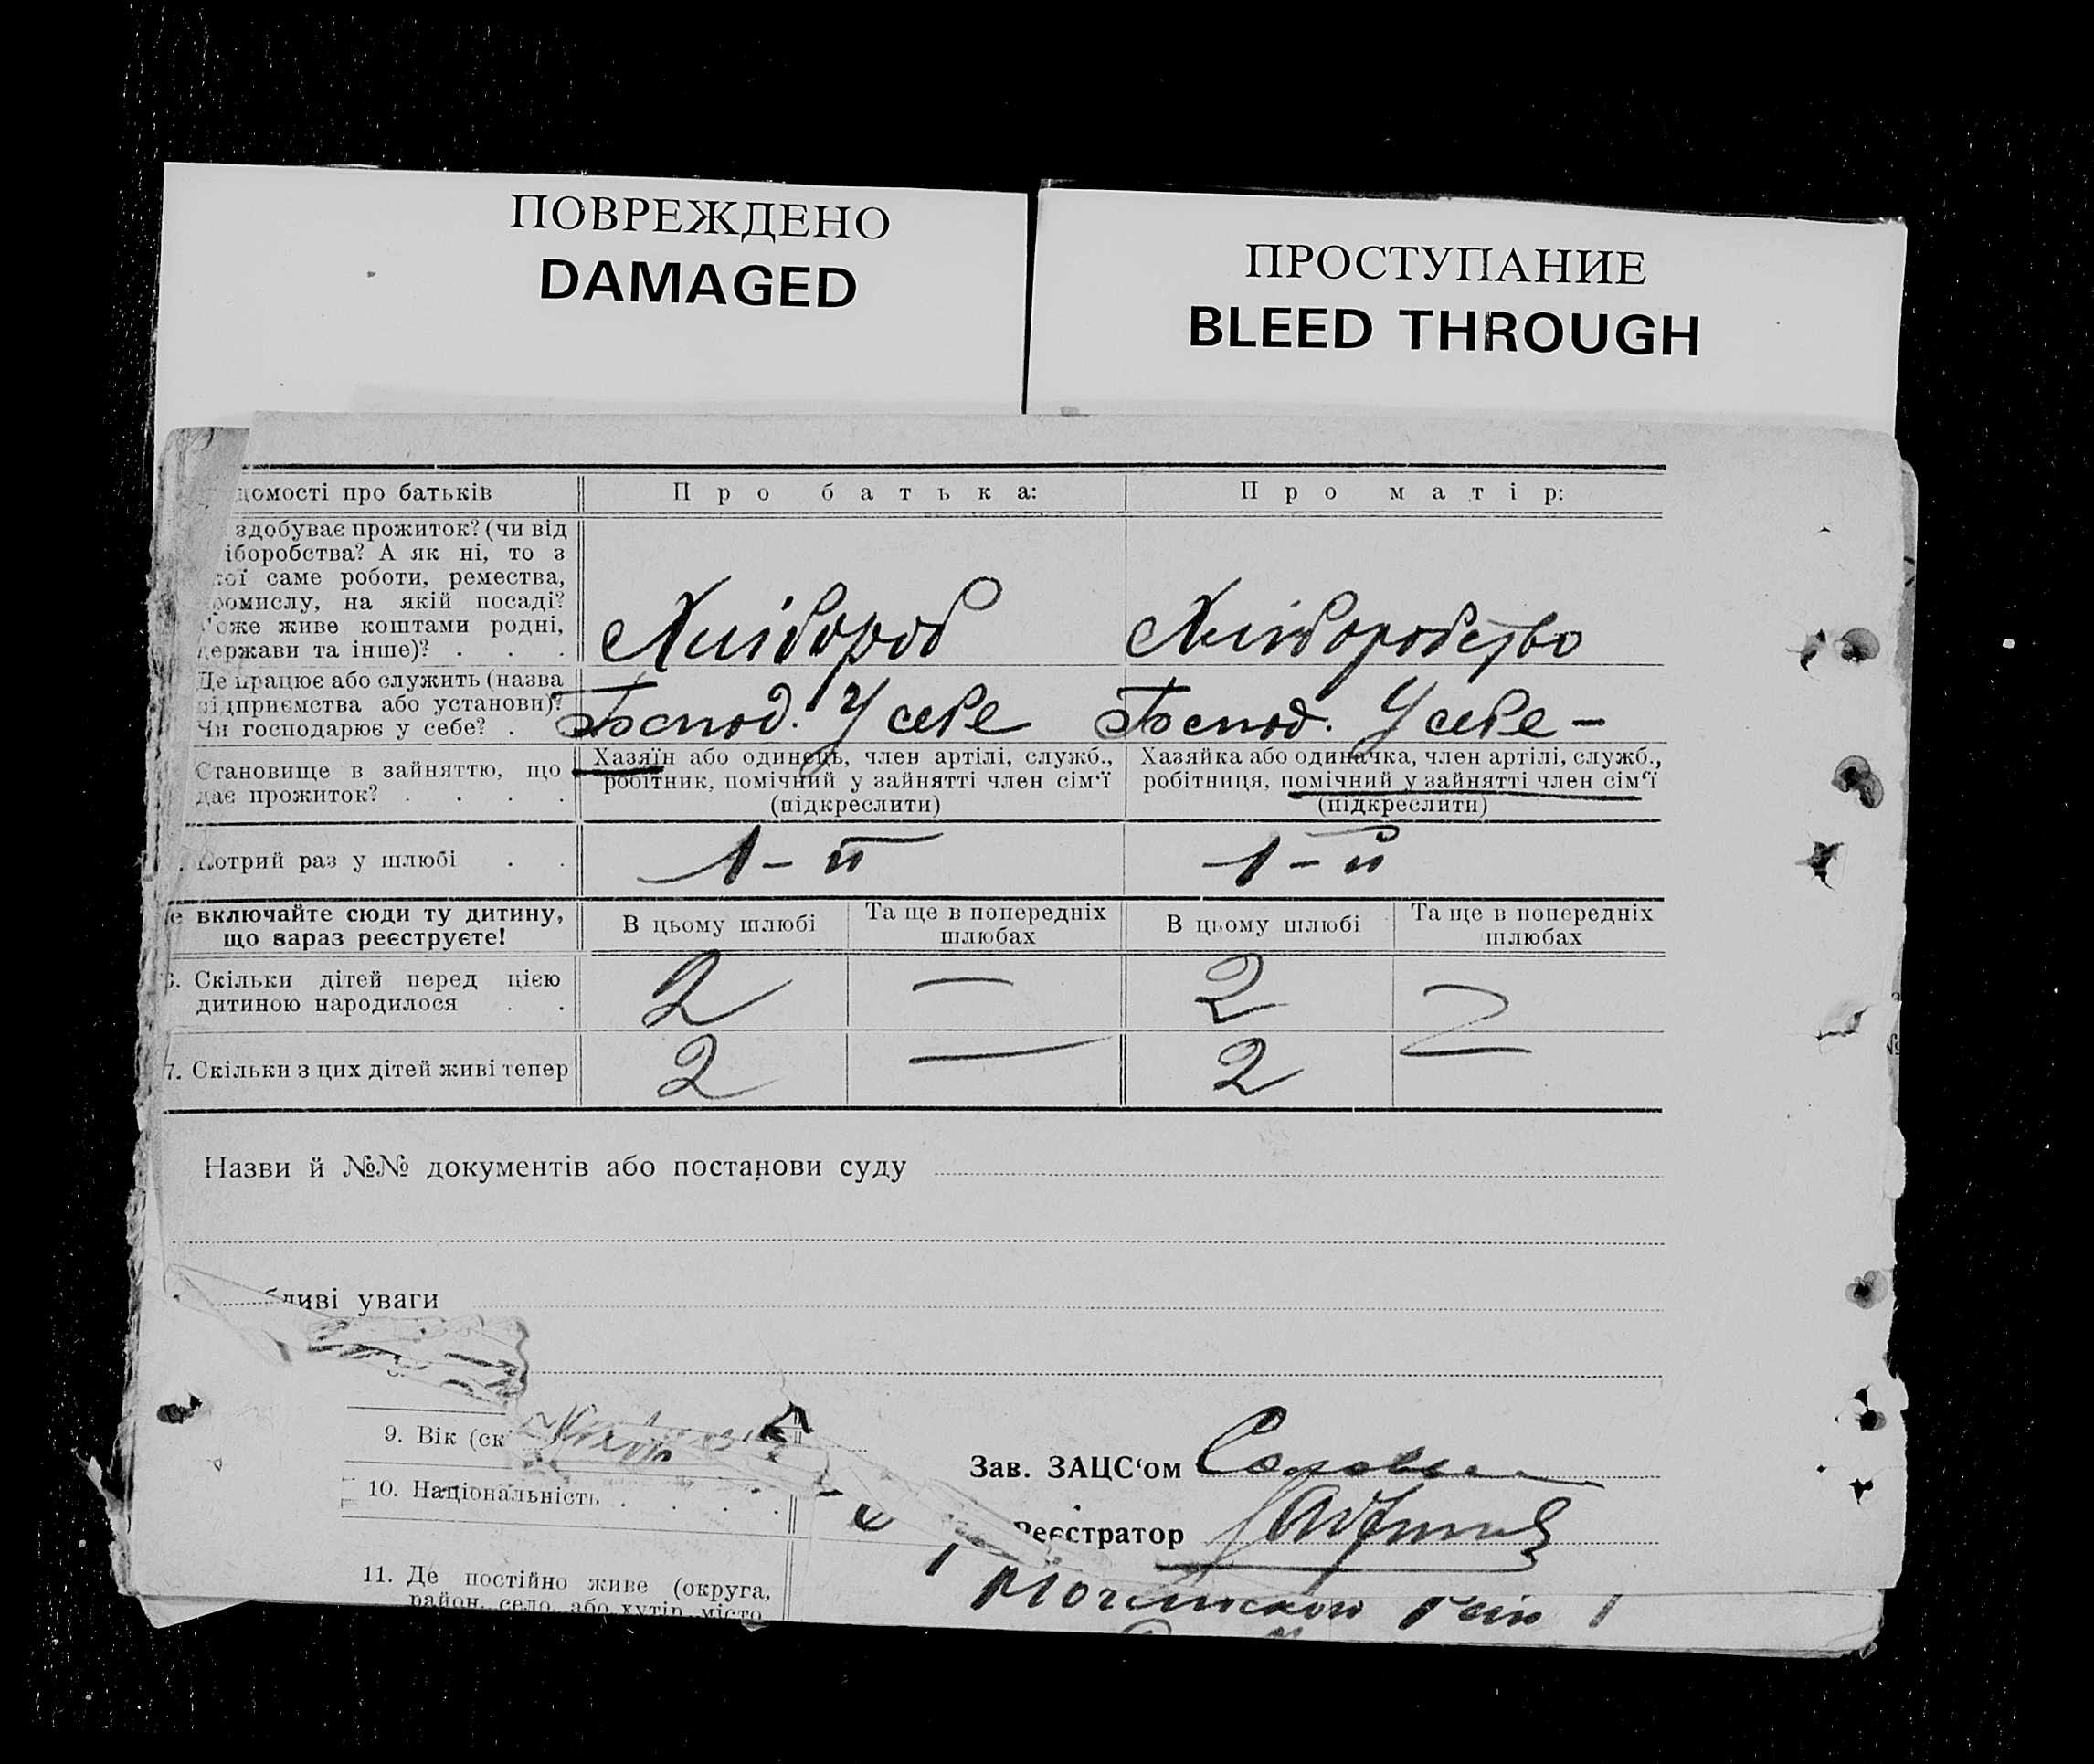 ПОВРЕЖДЕНО
DAMAGED
ПРОСТУПАНИЕ
BLEED THROUGH
домості про батьків
Про батька:
Про матір:
здобуває прожиток? (чи від
іборобства? А як ні, то з
кої саме роботи, ремества,
ромислу, на якій посаді?
Може живе коштами родні,
держави та інше)? . . .
Хлібороб
Хліборобство
Де працює або служить (назва
підприємства або установи)?
Чи господарює у себе? .
Господ. У себе
Господ. У себе –
Становище в зайняттю, що
дає прожиток? . . . .
Хазяїн або одинець, член артілі, служб.,
робітник, помічний у зайнятті член сім‘ї
(підкреслити)
Хазяйка або одиначка, член артілі, служб.,
робітниця, помічний у зайнятті член сім‘ї
(підкреслити)
Котрий раз у шлюбі . .
1-й
1-й
Не включайте сюди ту дитину,
що зараз реєструєте!
В цьому шлюбі
Та ще в попередніх
шлюбах
В цьому шлюбі
Та ще в попередніх
шлюбах
6. Скільки дітей перед цією
дитиною народилося . .
2
—
2
7. Скільки з цих дітей живі тепер
2
—
2
Назви й №№ документів або постанови суду
бливі уваги
9. Вік (ск
Зав. ЗАЦС‘ом
10. Національність . . . .
Реєстратор
11. Де постійно живе (округа,
район, село, або хутір, місто